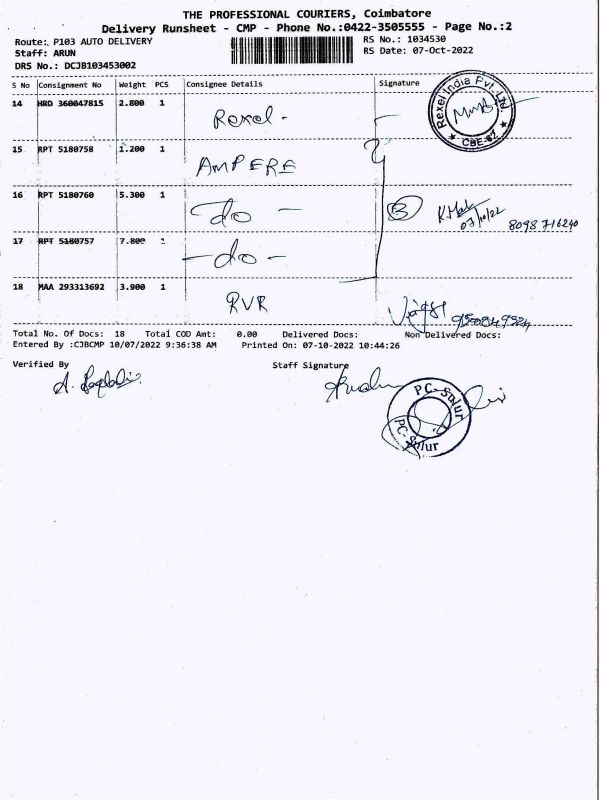 THE PROFESSIONAL COURIERS, Coimbatore
Delivery Runsheet - CMP - Phone No.:0422-3505555 - Page No.:2
Route: P103 AUTO DELIVERY RS No.: 1034530
Staff: ARUN RS Date: 07-Oct-2022
DRS No.: DCJB103453002
S No Consignment No Weight PCS Consignee Details Signature
14 HRD 360047815 2.800 1 Rexel -
Rexel India Pvt. Ltd. ★ CBE-02 ★
15 RPT 5180758 1.200 1 AMPERE
16 RPT 5180760 5.300 1 do - 3
07/10/22 8098 716240
17 RPT 5180757 7.800 1 - do -
18 MAA 293313692 3.900 1 RVR
Total No. Of Docs: 18 Total COD Amt: 0.00 Delivered Docs: Non Delivered Docs:
Entered By :CJBCMP 10/07/2022 9:36:38 AM Printed On: 07-10-2022 10:44:26
Verified By Staff Signature
PC-Sulur
PC-Sulur